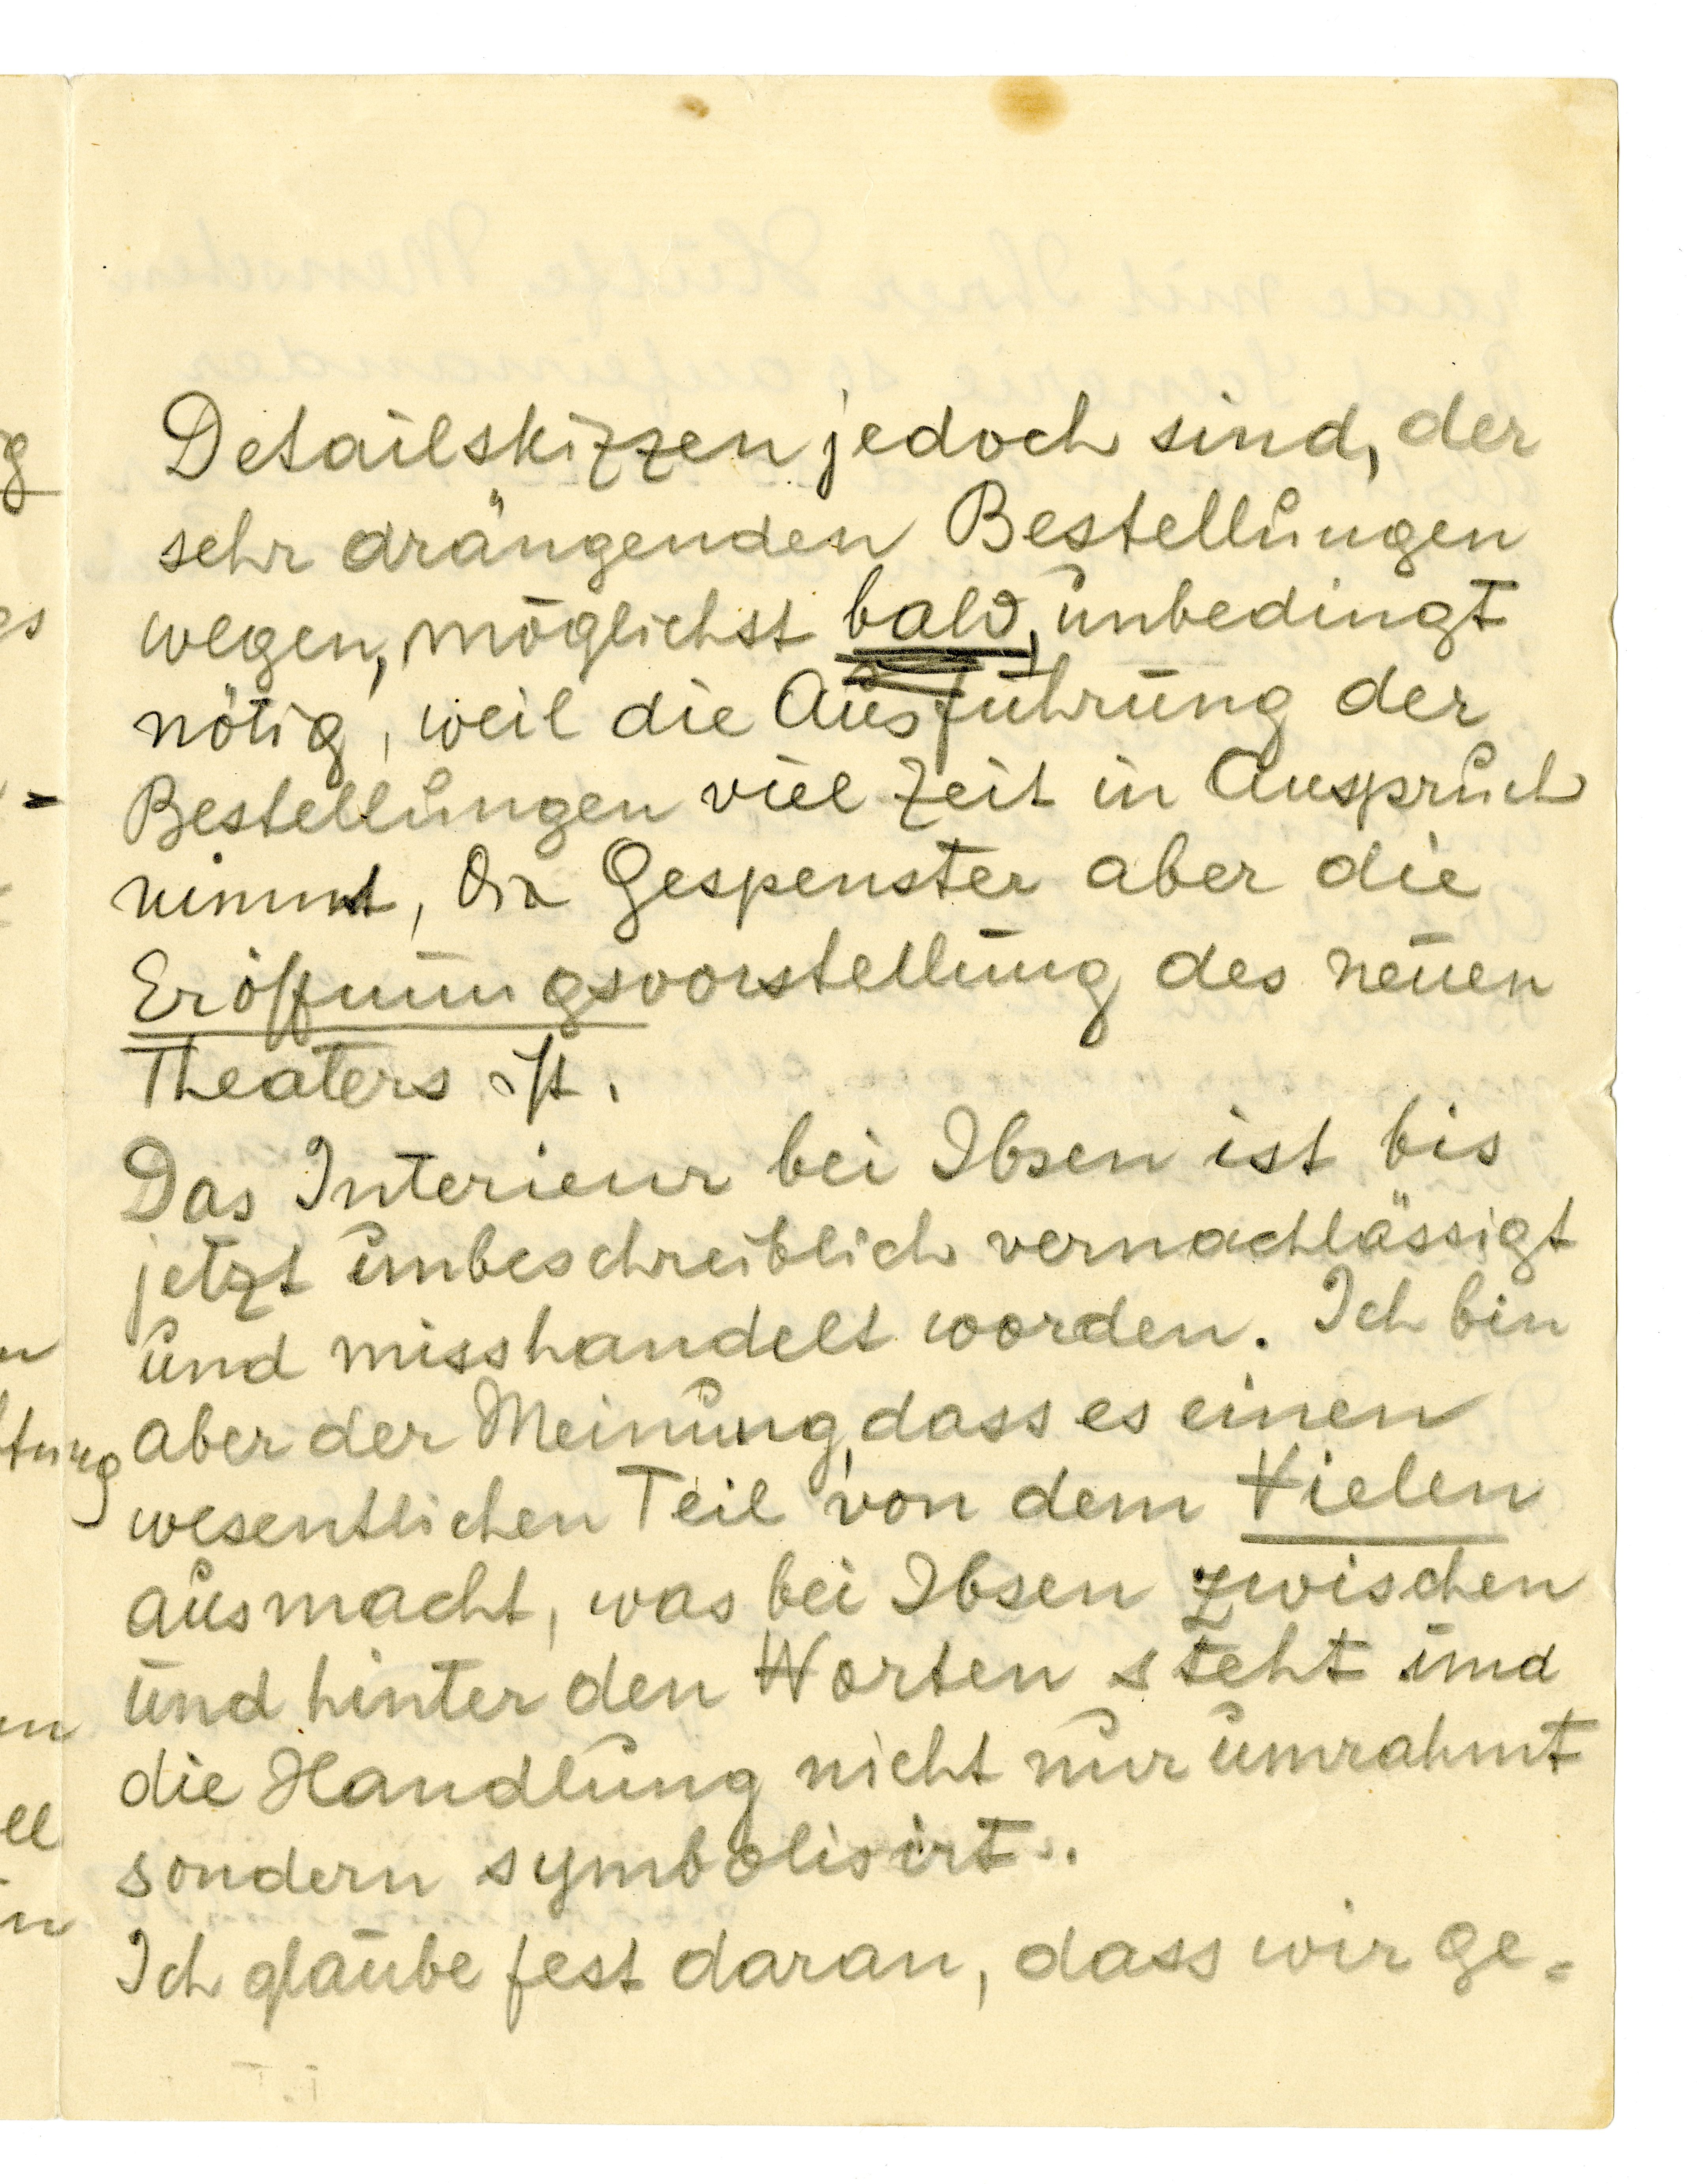 Detailskizzen jedoch sind, der
sehr drängenden Bestellungen
wegen, möglichst bald, unbedingt
nötig, weil die Ausführung der
Bestellungen viel Zeit in Anspruch
nimmt, die Gespenster aber die
Eröffnungsvorstellung des neuen
Theaters ist.
Das Interieur bei Ibsen ist bis
jetzt unbeschreiblich vernachlässigt
und misshandelt worden. Ich bin
aber der Meinung, dass es einen
wesentlichen Teil von dem Vielen
ausmacht, was bei Ibsen zwischen
und hinter den Worten steht und
die Handlung nicht nur umrahmt
sondern symbolisirt.
Ich glaube fest daran, dass wir ge=